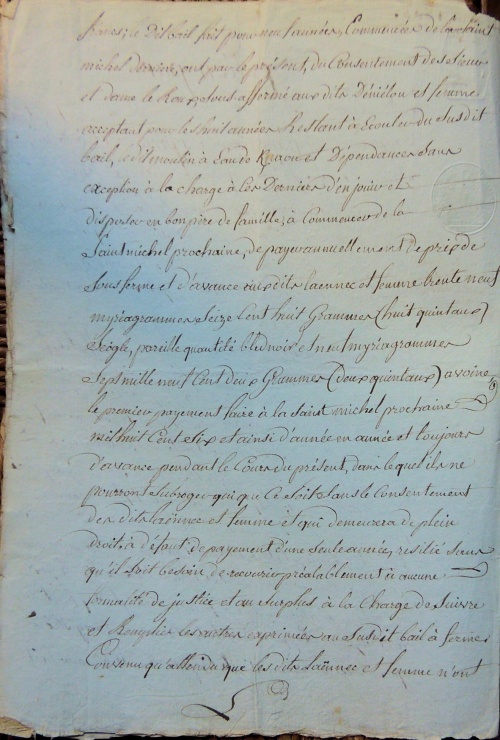 francs, ce dit bail fait pour neuf années, Commencées de la Saint
michel dernière, ont par le présent, du Consentement des sieur
et dame le Roux sous affermé aux dits Déniélou et femme
acceptant pour les huit années Restant à Ecouler du Susdit
bail, le dit moulin à Eau de et Dépendances Sans
exception à la charge à Ces Derniers d'en jouir et
disposer en bon père de famille, à Commencer de la
Saint michel prochaine, de payer annuellement De prix de
Sous ferme et d'avance aux dits Laennec et femme trente neuf
myriagrammes Seize Cent huit Grammes (huit quintaux)
Seigle, pareille quantité bled noir et neuf myriagrammes
Sept mille neuf Cent deux Grammes (deux quientaux) avoine,
le premier payement faire à la Saint michel prochaine
mil huit Cent Six et ainsi d'année en année et toujours
d'avance pendant le Cours du présent, dans lequel ils ne
pourront Subroger qui que Ce Soit Sans le Consentement
des dits Laënnec et femme et qui demeurera de plein
droit, à défaut de payement d'une Seule année, resilié Sans
qu'il Soit besoin de recourir préalablement à aucune
formalité de justice et au Surplus à la Charge de Suivre
et Remplir les autres exprimées au Susdit bail à ferme
Convenu qu'attendu que les dits Laënnec et femme n'ont